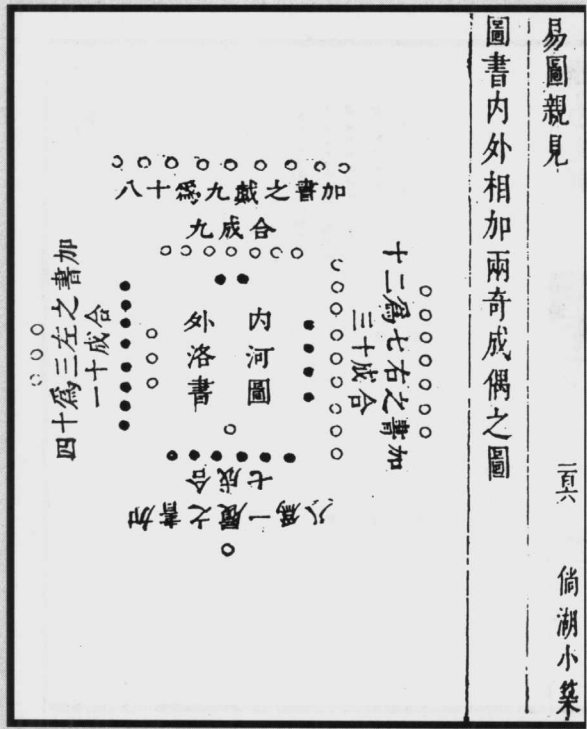 易圖親見
倘湖小築
圖書内外相加兩奇成偶之圖
加書之戴九爲十八
合成九
加書之右七爲二十
合成十三
内河圖
外洛書
合成十一
加書之左三爲十四
合成七
加書之履一爲八